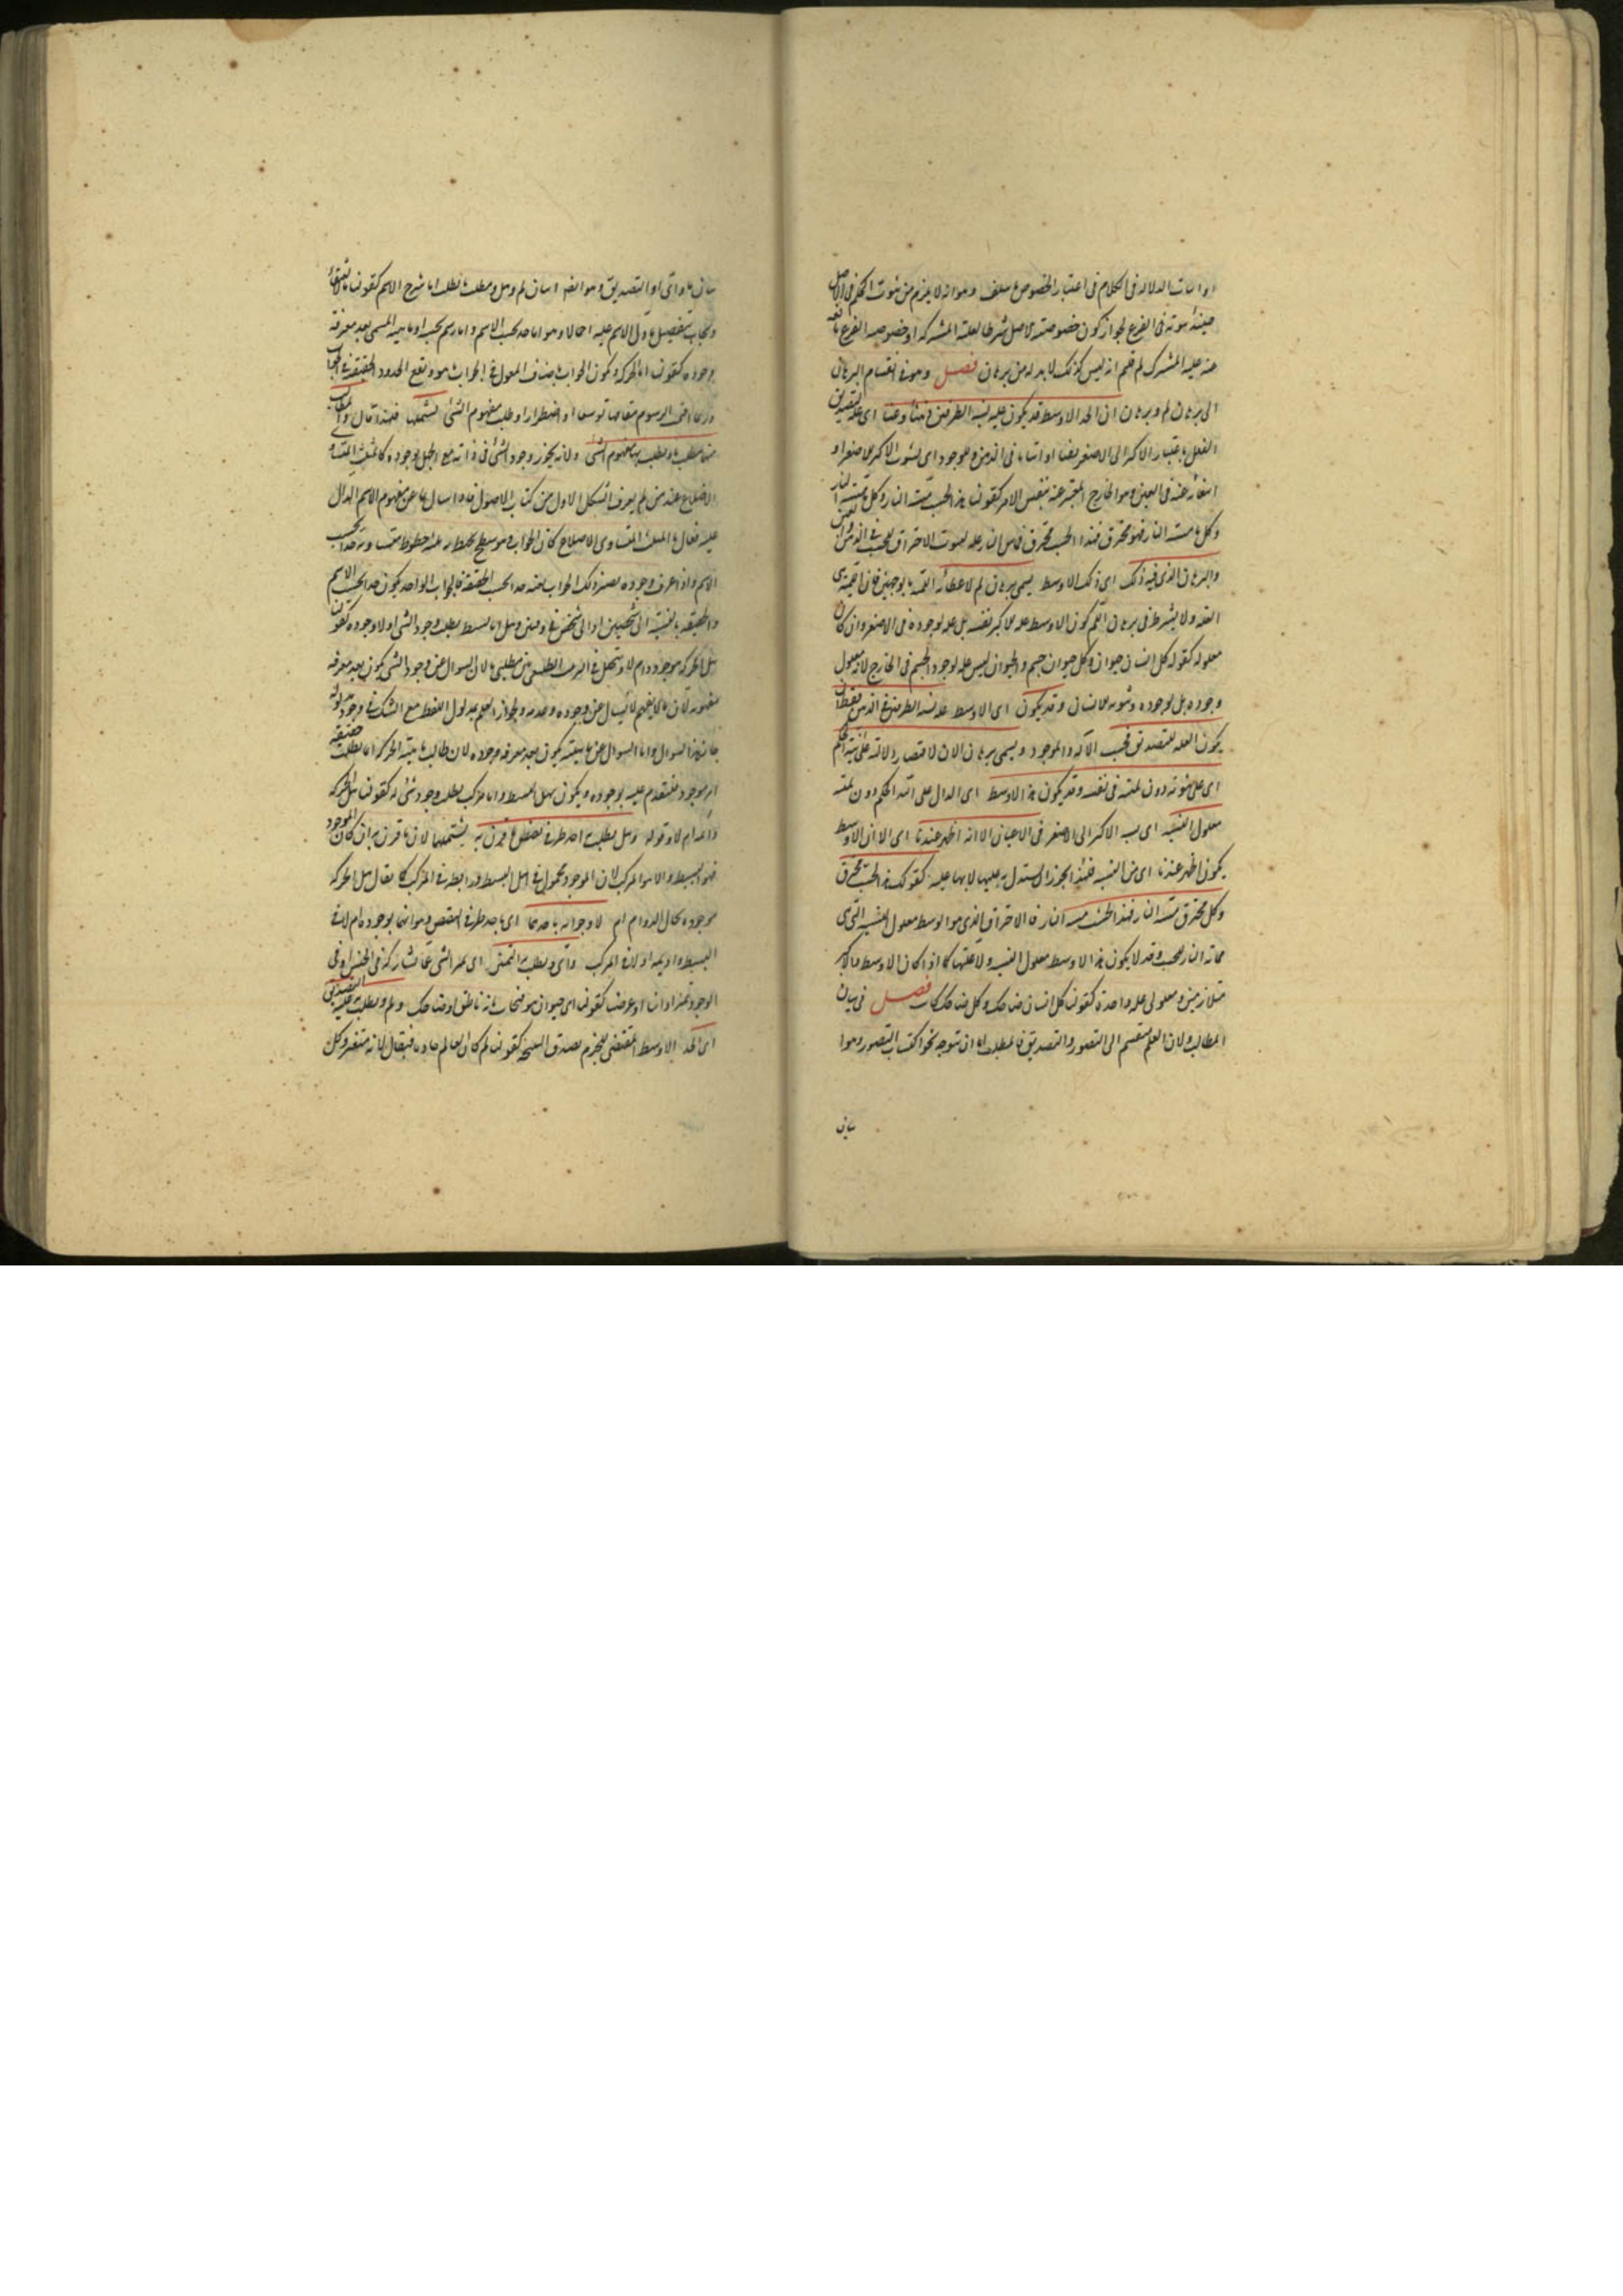 الكلام فى اعتبار الخصوص وهو انه لا يلزم من ثبوت الحكم فى الاصل
ثبوته فى الفرع لجواز كون خصوصية الاصل شرطا لعلية المشترك او خصوصية الفرع مانعة
لم قلتم انه ليس كذلك لا بد له من برهان فصل وهو فى انقسام البرهان
الى برهان لم وبرهان ان الحد الاوسط قد يكون علة نسبة الطرفين ذهنا وعينا اى علة التصديق
باعتبار الاكبر الى الاصغر او اثباتا فى الذهن وللوجود اى لثبوت الاكبر للاصغر او
عنه فى العين وهو الخارج المعبر عنه بنفس الامر كقولنا هذا الخشب مسته النار وكل ما مسته النار
فهو محترق فهذا الخشب محترق فان مس النار علة لثبوت الاحتراق للخشب فى الذهن والعين
والبرهان الذى فيه ذلك اى ذلك الاوسط يسمى برهان لم لاعطائه اللمية بوجهين فان اللمية هى
العلة ولا يشترط فى برهان اللم كون الاوسط علة للاكبر نفسه بل علة لوجوده فى الاصغر وان كان
معلوله كقوله كل انسان حيوان وكل حيوان جسم والحيوان ليس علة لوجود الجسم فى الخارج لانه معلول
وجوده بل لوجوده وثبوته للانسان وقد يكون اى الاوسط علة نسبة الطرفين فى الذهن فقط اى
يكون العلة للتصديق فحسب لا له وللوجود ويسمى برهان الان لاقتصار دلالته على انية الحكم
اى على ثبوته دون لميته فى نفسه وقد يكون هذا الاوسط اى الدال على انية الحكم دون لميته
معلول النسبة اى نسبة الاكبر الى الاصغر فى الاعيان الا انه اظهر عندنا اى الا ان الاوسط
يكون اظهر عندنا اى من النسبة فلهذا يجوز ان يستدل به عليها لا بها عليه كقولك هذا الخشب محترق
وكل محترق مسته النار فهذا الخشب مسته النار فالاحتراق الذى هو الاوسط معلول النسبة التى هى
مماسة النار للخشب وقد لا يكون هذا الاوسط معلول النسبة ولا علتها كما اذا كان الاوسط والاكبر
متلازمين ومعلولى علة واحدة كقولنا كل انسان ضاحك وكل ضاحك كاتب فصل فى بيان
المطالب ولان العلم منقسم الى التصور والتصديق فالمطلب اما ان يتوجه نحو اكتساب التصور وهو اما
بيان
بيان ما واى او التصديق وهو ايضا اما بيان لم وهل ومطلب ما يطلب اما شرح الاسم كقولنا ما العنقاء
ويجاب بتفصيل ما دل الاسم عليه اجمالا وهو اما حد بحسب الاسم واما رسم بحسبه او ماهية المسمى بعد معرفة
وجوده كقولنا ما الحركة ويكون الجواب باصناف المقول فى جواب ما هو ويقع الحدود الحقيقية فى الجواب
وربما اقيم الرسوم مقامها توسعا او اضطرارا وطلب مفهوم الشئ يشملهما فلهذا قال والمطالب
منها مطلب ما ويطلب بها مفهوم الشئ ولانه يجوز وجود الشئ فى ذاته مع الجهل بوجوده كالمثلث المتساوى
الاضلاع عند من لم يعرف الشكل الاول من كتاب الاصول فاذا سأل بما عن مفهوم الاسم الدال
عليه فقال ما المثلث المتساوى الاضلاع كان الجواب هو سطح يحيط به ثلثة خطوط متساوية حدا بحسب
الاسم واذا عرف وجوده يصير ذلك الجواب بعينه حدا بحسب الحقيقة فالجواب الواحد يكون حدا بحسب الاسم
والحقيقة بالنسبة الى شخصين او الى شخص فى وقتين وهل اما بسيط يطلب وجود الشئ او لا وجوده كقولنا
هل الحركة موجودة ام لا مطلبى ما لان السؤال عن وجود الشئ يكون بعد معرفة
مفهومه لان ما لا يفهم لا يسأل عن وجوده وعدمه ولجواز العلم بمدلول اللفظ مع الشك فى وجود مدلوله
جاز هذا السؤال واما السؤال عن ماهيته يكون بعد معرفة وجوده لان طالب ماهية الحركة انما يطلب حقيقة
امر موجود فيتقدم عليه بوجوده ويكون بهل البسيط واما مركب يطلب وجود شئ له كقولنا هل الحركة
دائمة ام لا وقوله وهل يطلب به احد طرفى نقيض ما قرن به يشتملهما لان ما قرن به ان كان الموجود
فهو البسيط والا هو المركب لان الموجود محمول فى هل البسيط ورابطة فى المركب كما يقال هل الحركة
موجودة بحال الدوام ام لا وجوابه باحدهما اى باحد طرفى النقيض وهو انها موجودة ام لا فى
البسيط ودائمة او لا فى المركب واى ويطلب به التميز اى تميز الشئ عما يشاركه فى الجنس او فى
الوجود تميزا ذاتيا او عرضيا كقولنا اى حيوان هو فيجاب بانه ناطق او ضاحك ولم ويطلب به علة التصديق
اى الحد الاوسط المقتضى للجزم بصدق النتيجة كقولنا لم كان العالم حادثا فيقال لانه متغير وكل